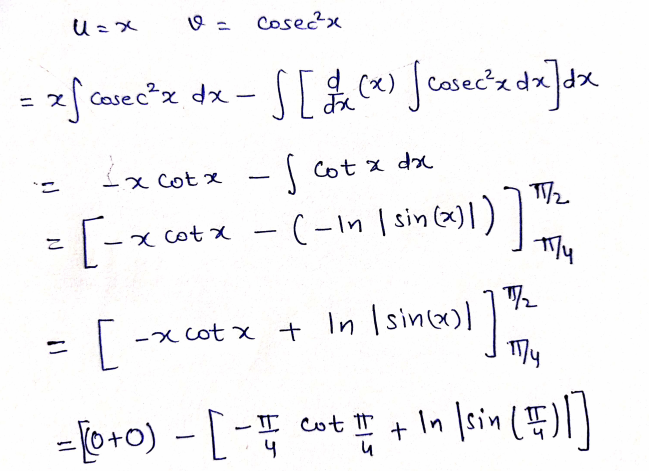 u = x   v = cosec²x
= x∫ cosec²x dx − ∫ [ d/dx (x) ∫ cosec²x dx ] dx
= −x cot x − ∫ cot x dx
= [ −x cot x − (−ln |sin(x)|) ]^{π/2}_{π/4}
= [ −x cot x + ln |sin(x)| ]^{π/2}_{π/4}
= [(0+0) − [ −π/4 cot π/4 + ln |sin (π/4)| ]